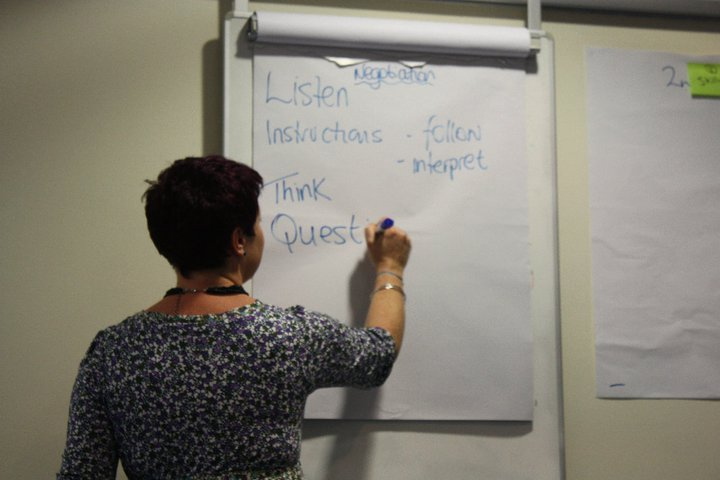 Negotiation
Listen
Instructions - follow
- interpret
Think
Questi
2n